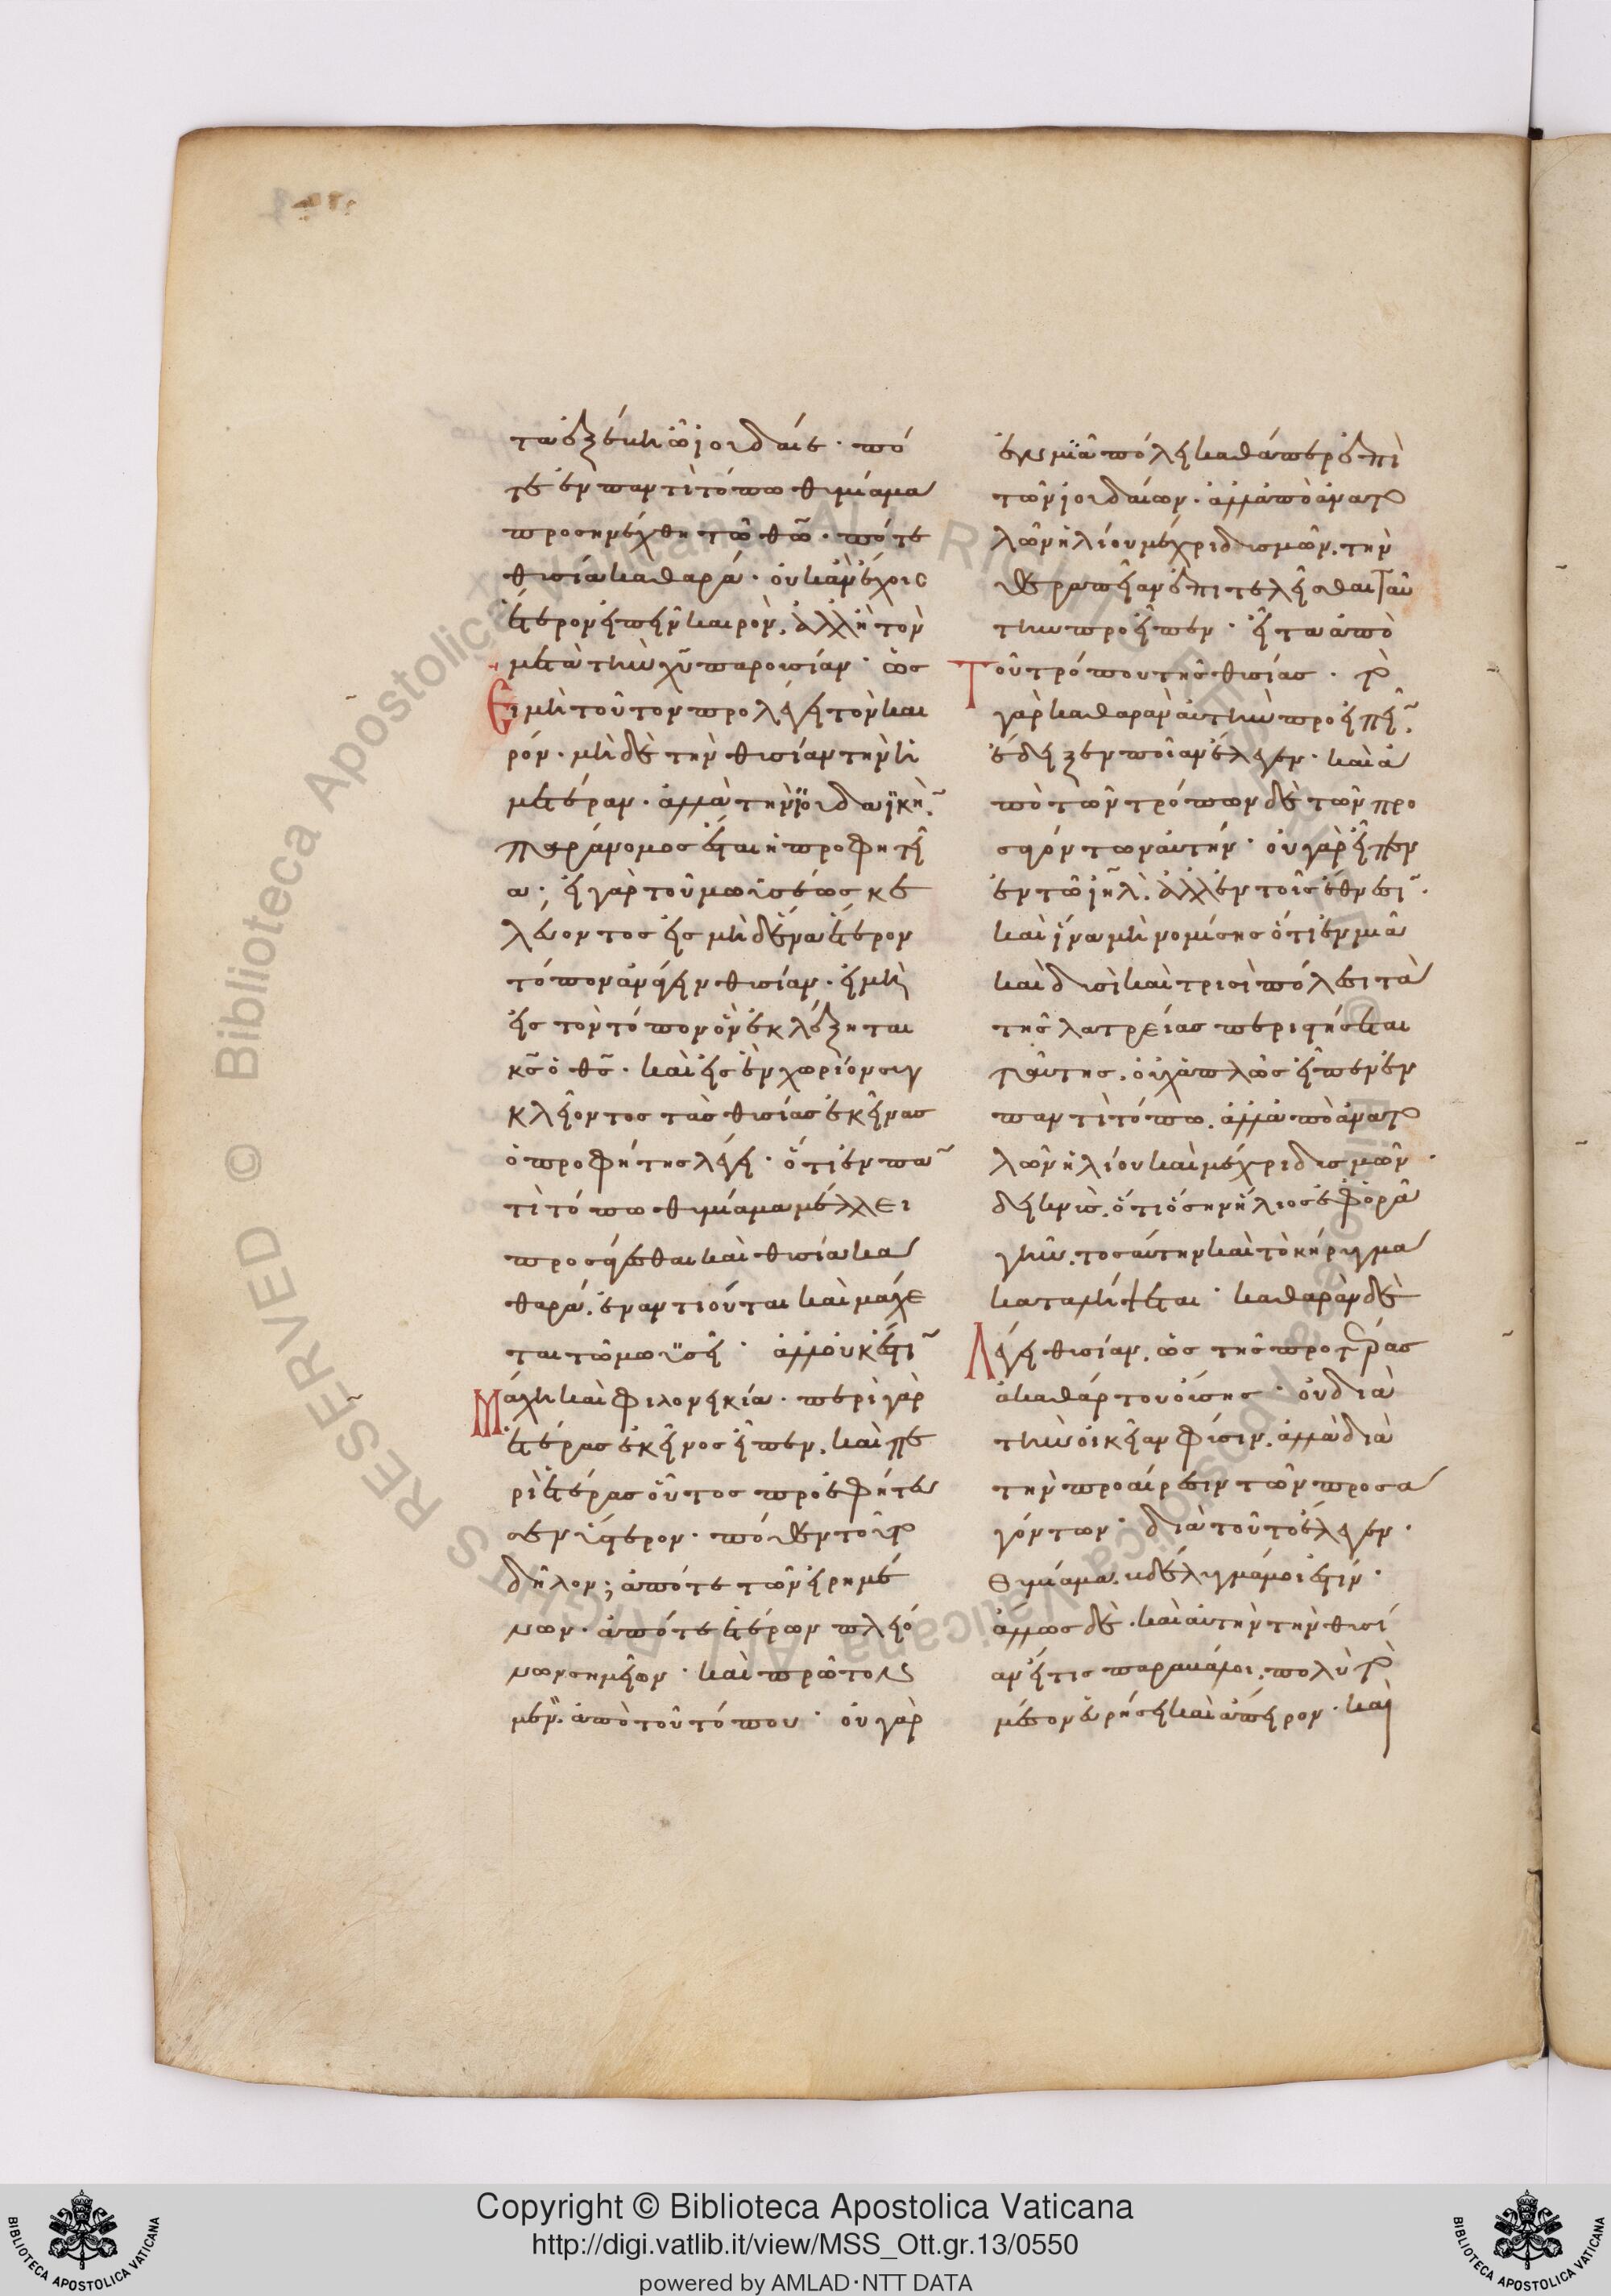 ταῦτα ἐξέβη ὦ ἰουδαῖε · πό
τε ἐν παντὶ τόπω θυμίαμα
προσηνέχθη τῶ θῶ · πότε
θυσία καθαρά · οὐκ ἂν ἔχοις
ἕτερον εἰπεῖν καιρὸν, ἀλλ' ἢ τὸν
μετὰ τὴν χῦ παρουσίαν · ὡς
εἰ μὴ τοῦτον προλέγει τὸν και
ρόν · μὴ δὲ τὴν θυσίαν τὴν ἡ
μετέραν · ἀλλὰ τὴν ϊουδαϊκὴ̄.
παράνομος ἔσται ἡ προφητεί
α · εἰ γὰρ τοῦ μωϋσέως κε
λεύοντος εἰς μὴ δένα ἕτερον
τόπον ἀνάγειν θυσίαν · εἰ μὴ
εἰς τὸν τόπον ὃν ἐκλέξηται
κς ὁ θς · καὶ εἰς ἓν χωρίον συγ
κλείοντος τὰς θυσίας ἐκείνας
ὁ προφήτης λέγει · ὅτι ἐν πᾱ
τὶ τόπω θυμίαμα μέλλει
προσάγεσθαι καὶ θυσία κα
θαρά. ἐναντιοῦται καὶ μάχε
ται τῶ μωϋσεῖ · ἀλλ' οὐκ ἔστῑ
μάχη καὶ φιλονεικία · περὶ γὰρ
ἑτέρας ἐκεῖνος εἶπεν, καὶ πε
ρὶ ἑτέρας οὗτος προεφήτευ
σεν ὕστερον · πόθεν τοῦτο
δῆλον; ἀπό τε τῶν εἰρημέ
νων · ἀπό τε ἑτέρων πλειό
νων σημείων · καὶ πρῶτον
μὲν ἀπὸ τοῦ τόπου · οὐ γὰρ
ἐν μιᾶ πόλει καθάπερ ἐπὶ
τῶν ἰουδαίων · ἀλλ' ἀπὸ ἀνατο
λῶν ἡλίου μέχρι δυσμῶν, τὴν
θεραπείαν ἐπιτελεῖσθαι ταύ
την προεῖπεν · εἶτα ἀπὸ
τοῦ τρόπου τῆς θυσίας · τὸ
γὰρ καθαρὰν αὐτὴν προειπεῖ̄.
ἔδειξεν ποίαν ἔλεγεν · καὶ ἀ
πὸ τῶν τρόπων δὲ τῶν προ
σαγόντων αὐτήν · οὐ γὰρ εἶπεν
ἐν τῶ ιηλ. ἀλλ' ἐν τοῖς ἔθνεσῑ.
καὶ ἵνα μὴ νομίσης ὅτι ἐν μιᾶ
καὶ δυσὶ καὶ τρισὶ πόλεσι τὰ
τῆς λατρείας περιστήσεται
ταύτης. οὐχ ἁπλῶς εἶπεν ἐν
παντὶ τόπω. ἀλλ' ἀπὸ ἀνατο
λῶν ἡλίου καὶ μέχρι δυσμῶν ·
δεικνὺς, ὅτι ὅσην ἥλιος ἐφορᾶ
γῆν, τοσαύτην καὶ τὸ κήρυγμα
καταλήψεται · καθαρὰν δὲ
λέγει θυσίαν, ὡς τῆς προτέρας
ἀκαθάρτου οὔσης · οὐ διὰ
τὴν οἰκείαν φύσιν, ἀλλὰ διὰ
τὴν προαίρεσιν τῶν προσα
γόντων · διὰ τοῦτο ἔλεγεν ·
θυμίαμα βδέλυγμά μοί ἐστιν ·
ἄλλως δὲ · καὶ αὐτὴν τὴν θυσί
αν εἴ τις παραβάλοι, πολὺ τὸ
μέσον εὑρήσει καὶ ἄπειρον · καὶ
Copyright © Biblioteca Apostolica Vaticana
http://digi.vatlib.it/view/MSS_Ott.gr.13/0550
powered by AMLAD·NTT DATA